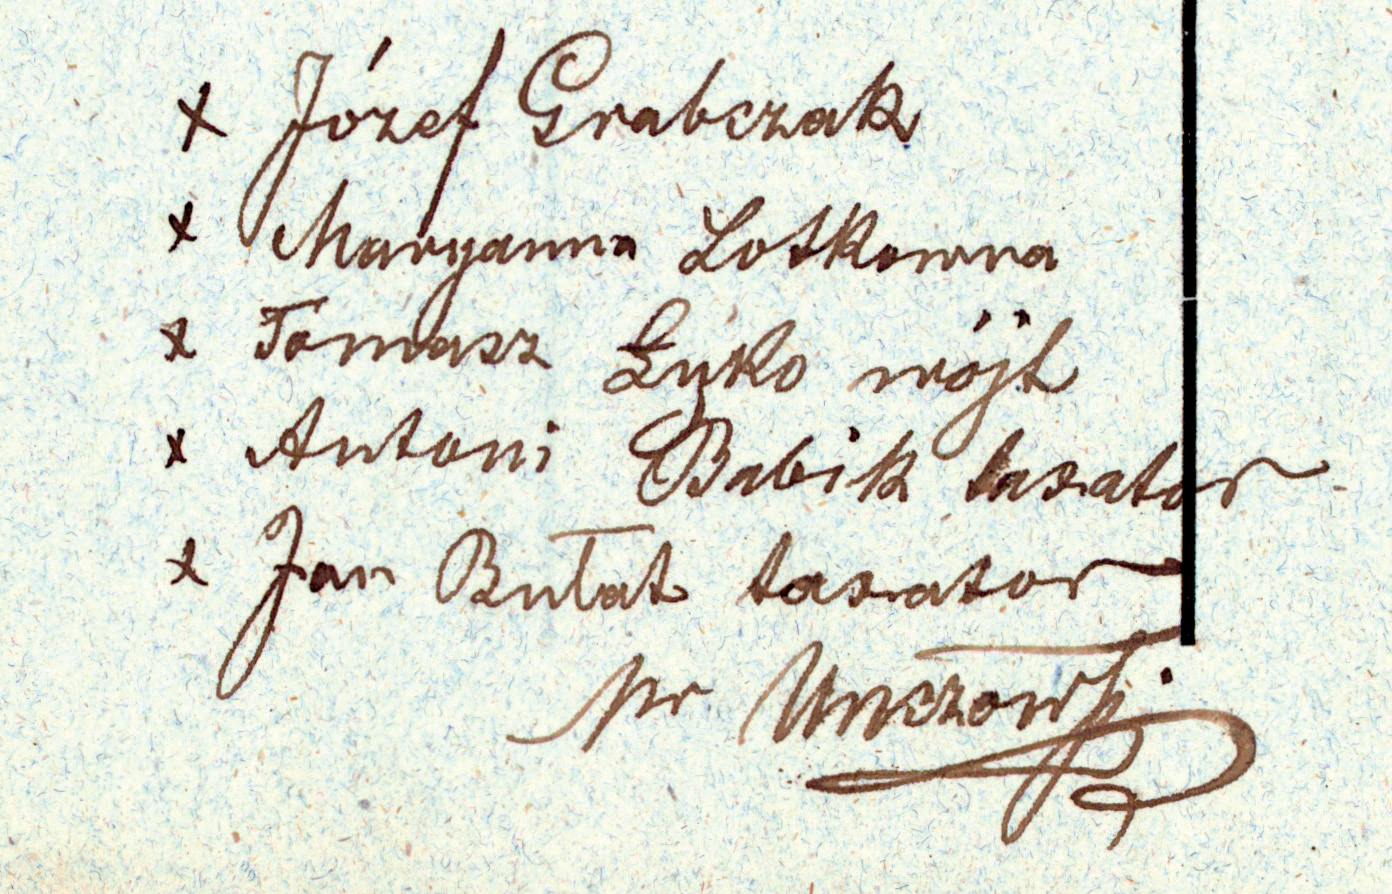 x Józef Grabczak
x Maryanna Lotkowna
x Tomasz Łyko wójt
x Antoni Babik taxator
x Jan Bułat taxator